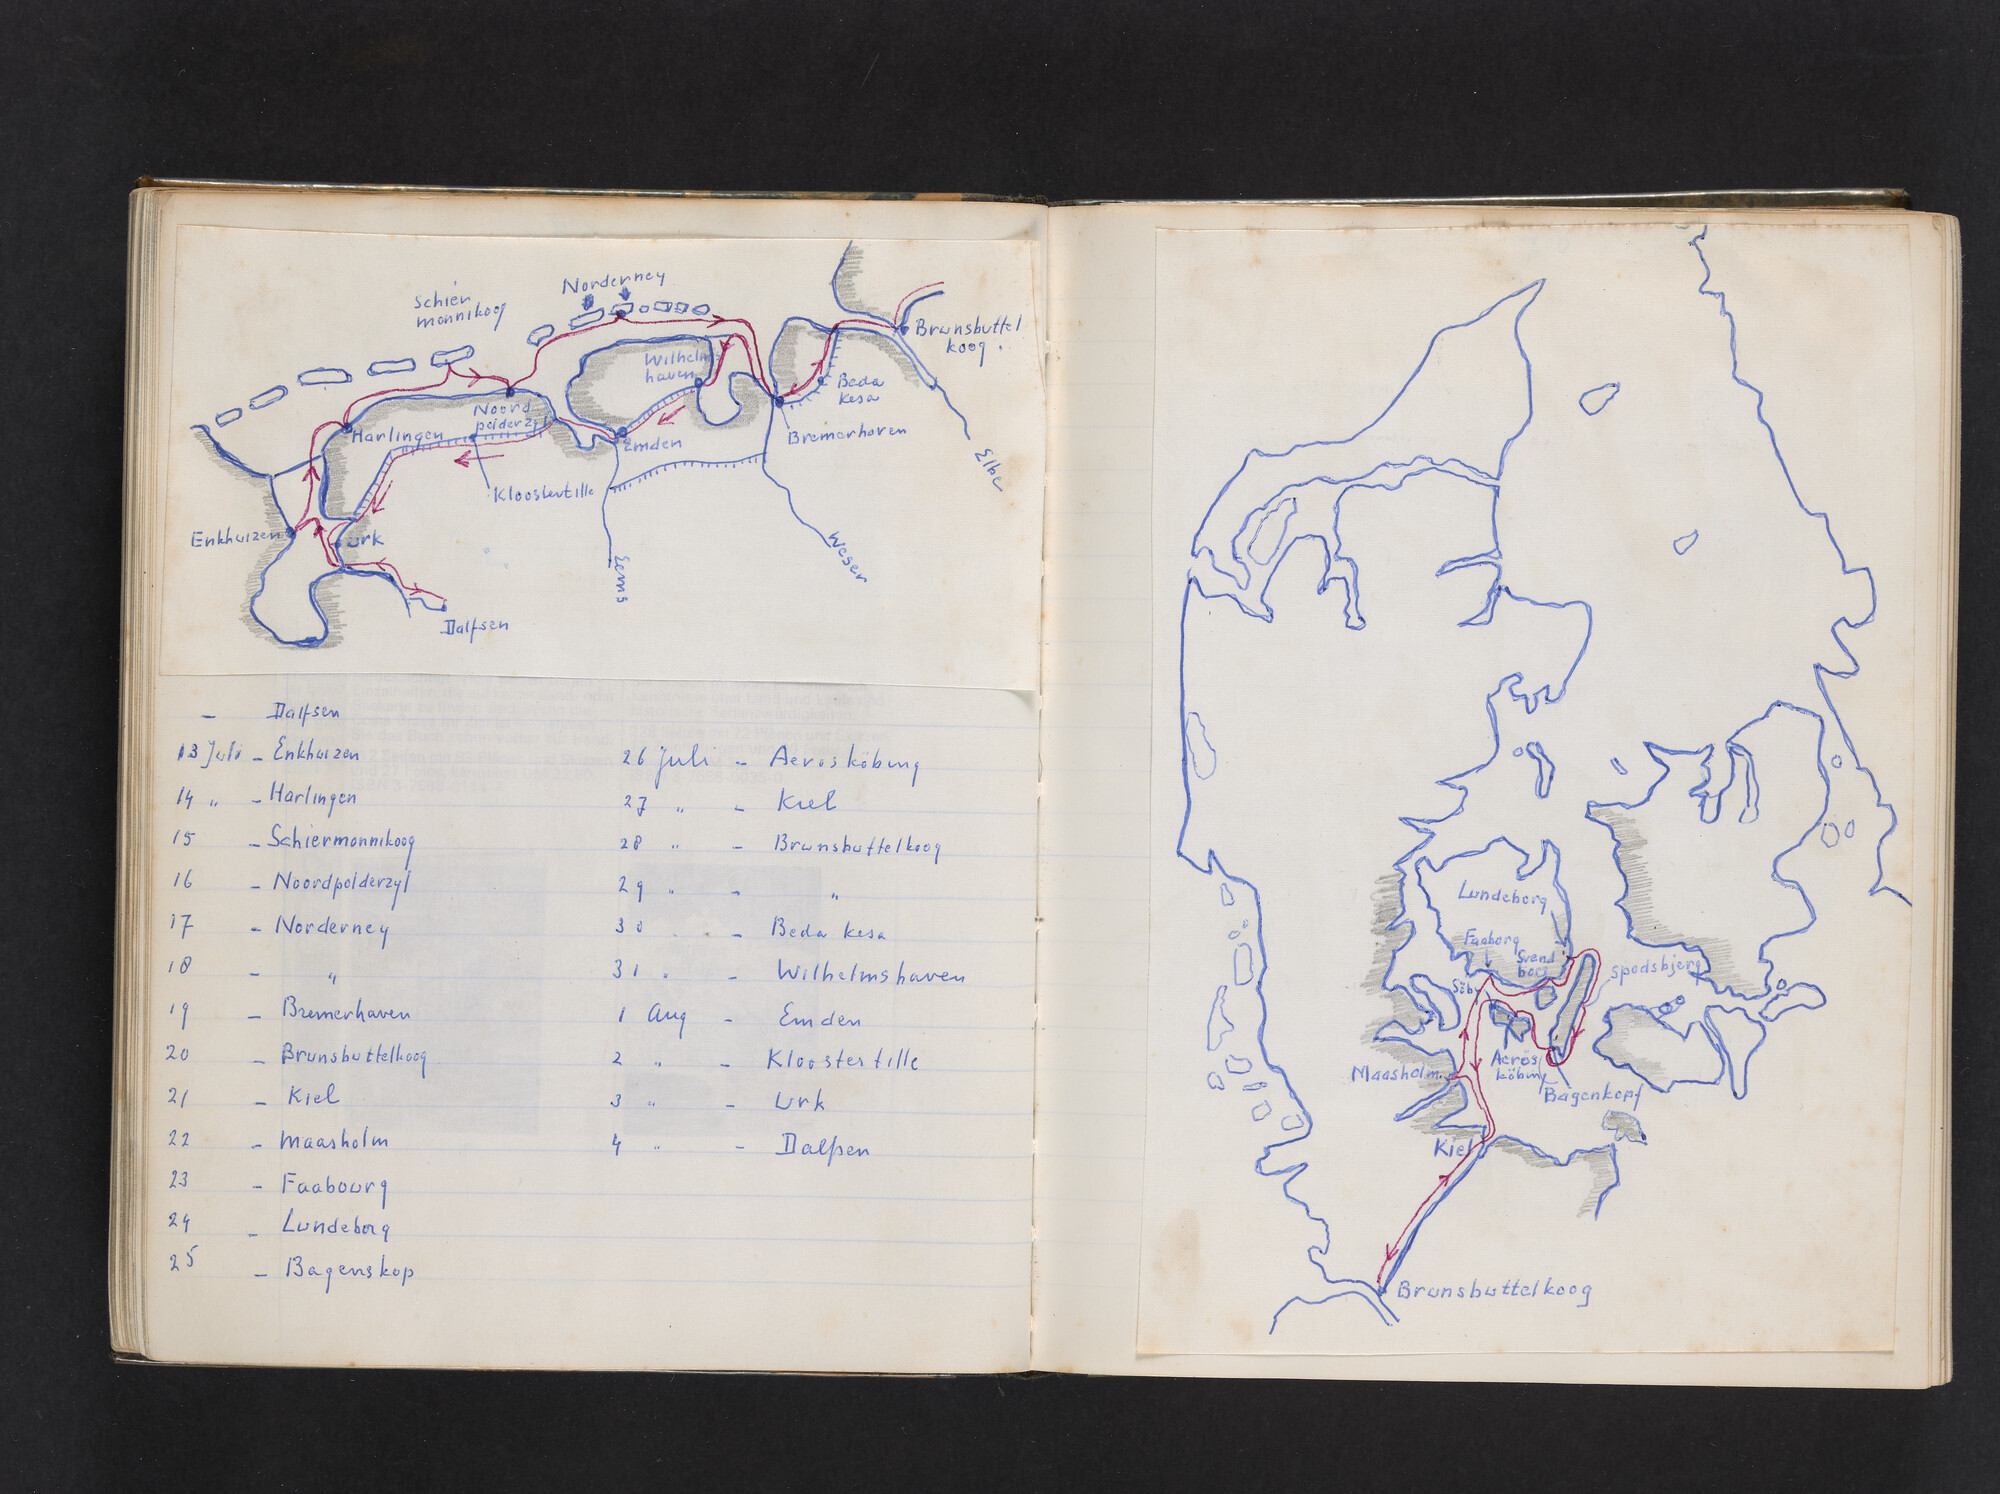 Schier
monnikoog
Norderney
Brunsbuttel
koog.
Wilhelms
haven
Beda
Kesa
Noord
polderzyl
Harlingen
Emden
Bremerhaven
Elbe
Kloostertille
Enkhuizen
Urk
Weser
Eems
Dalfsen
- Dalfsen
13 Juli - Enkhuizen
14 " - Harlingen
15 - Schiermonnikoog
16 - Noordpolderzyl
17 - Norderney
18 - "
19 - Bremerhaven
20 - Brunsbuttelkoog
21 - Kiel
22 - Maasholm
23 - Faabourg
24 - Lundeborg
25 - Bagenskop
26 Juli - Aerosköbing
27 " - Kiel
28 " - Brunsbuttelkoog
29 " - "
30 " - Beda Kesa
31 " - Wilhelmshaven
1 Aug - Emden
2 " - Kloostertille
3 " - Urk
4 " - Dalfsen
Lundeborg
Faaborg
Svend
borg
Spodsbjerg
Söby
Maasholm
Aerös
köbing
Bagenkopf
Kiel
Brunsbuttelkoog